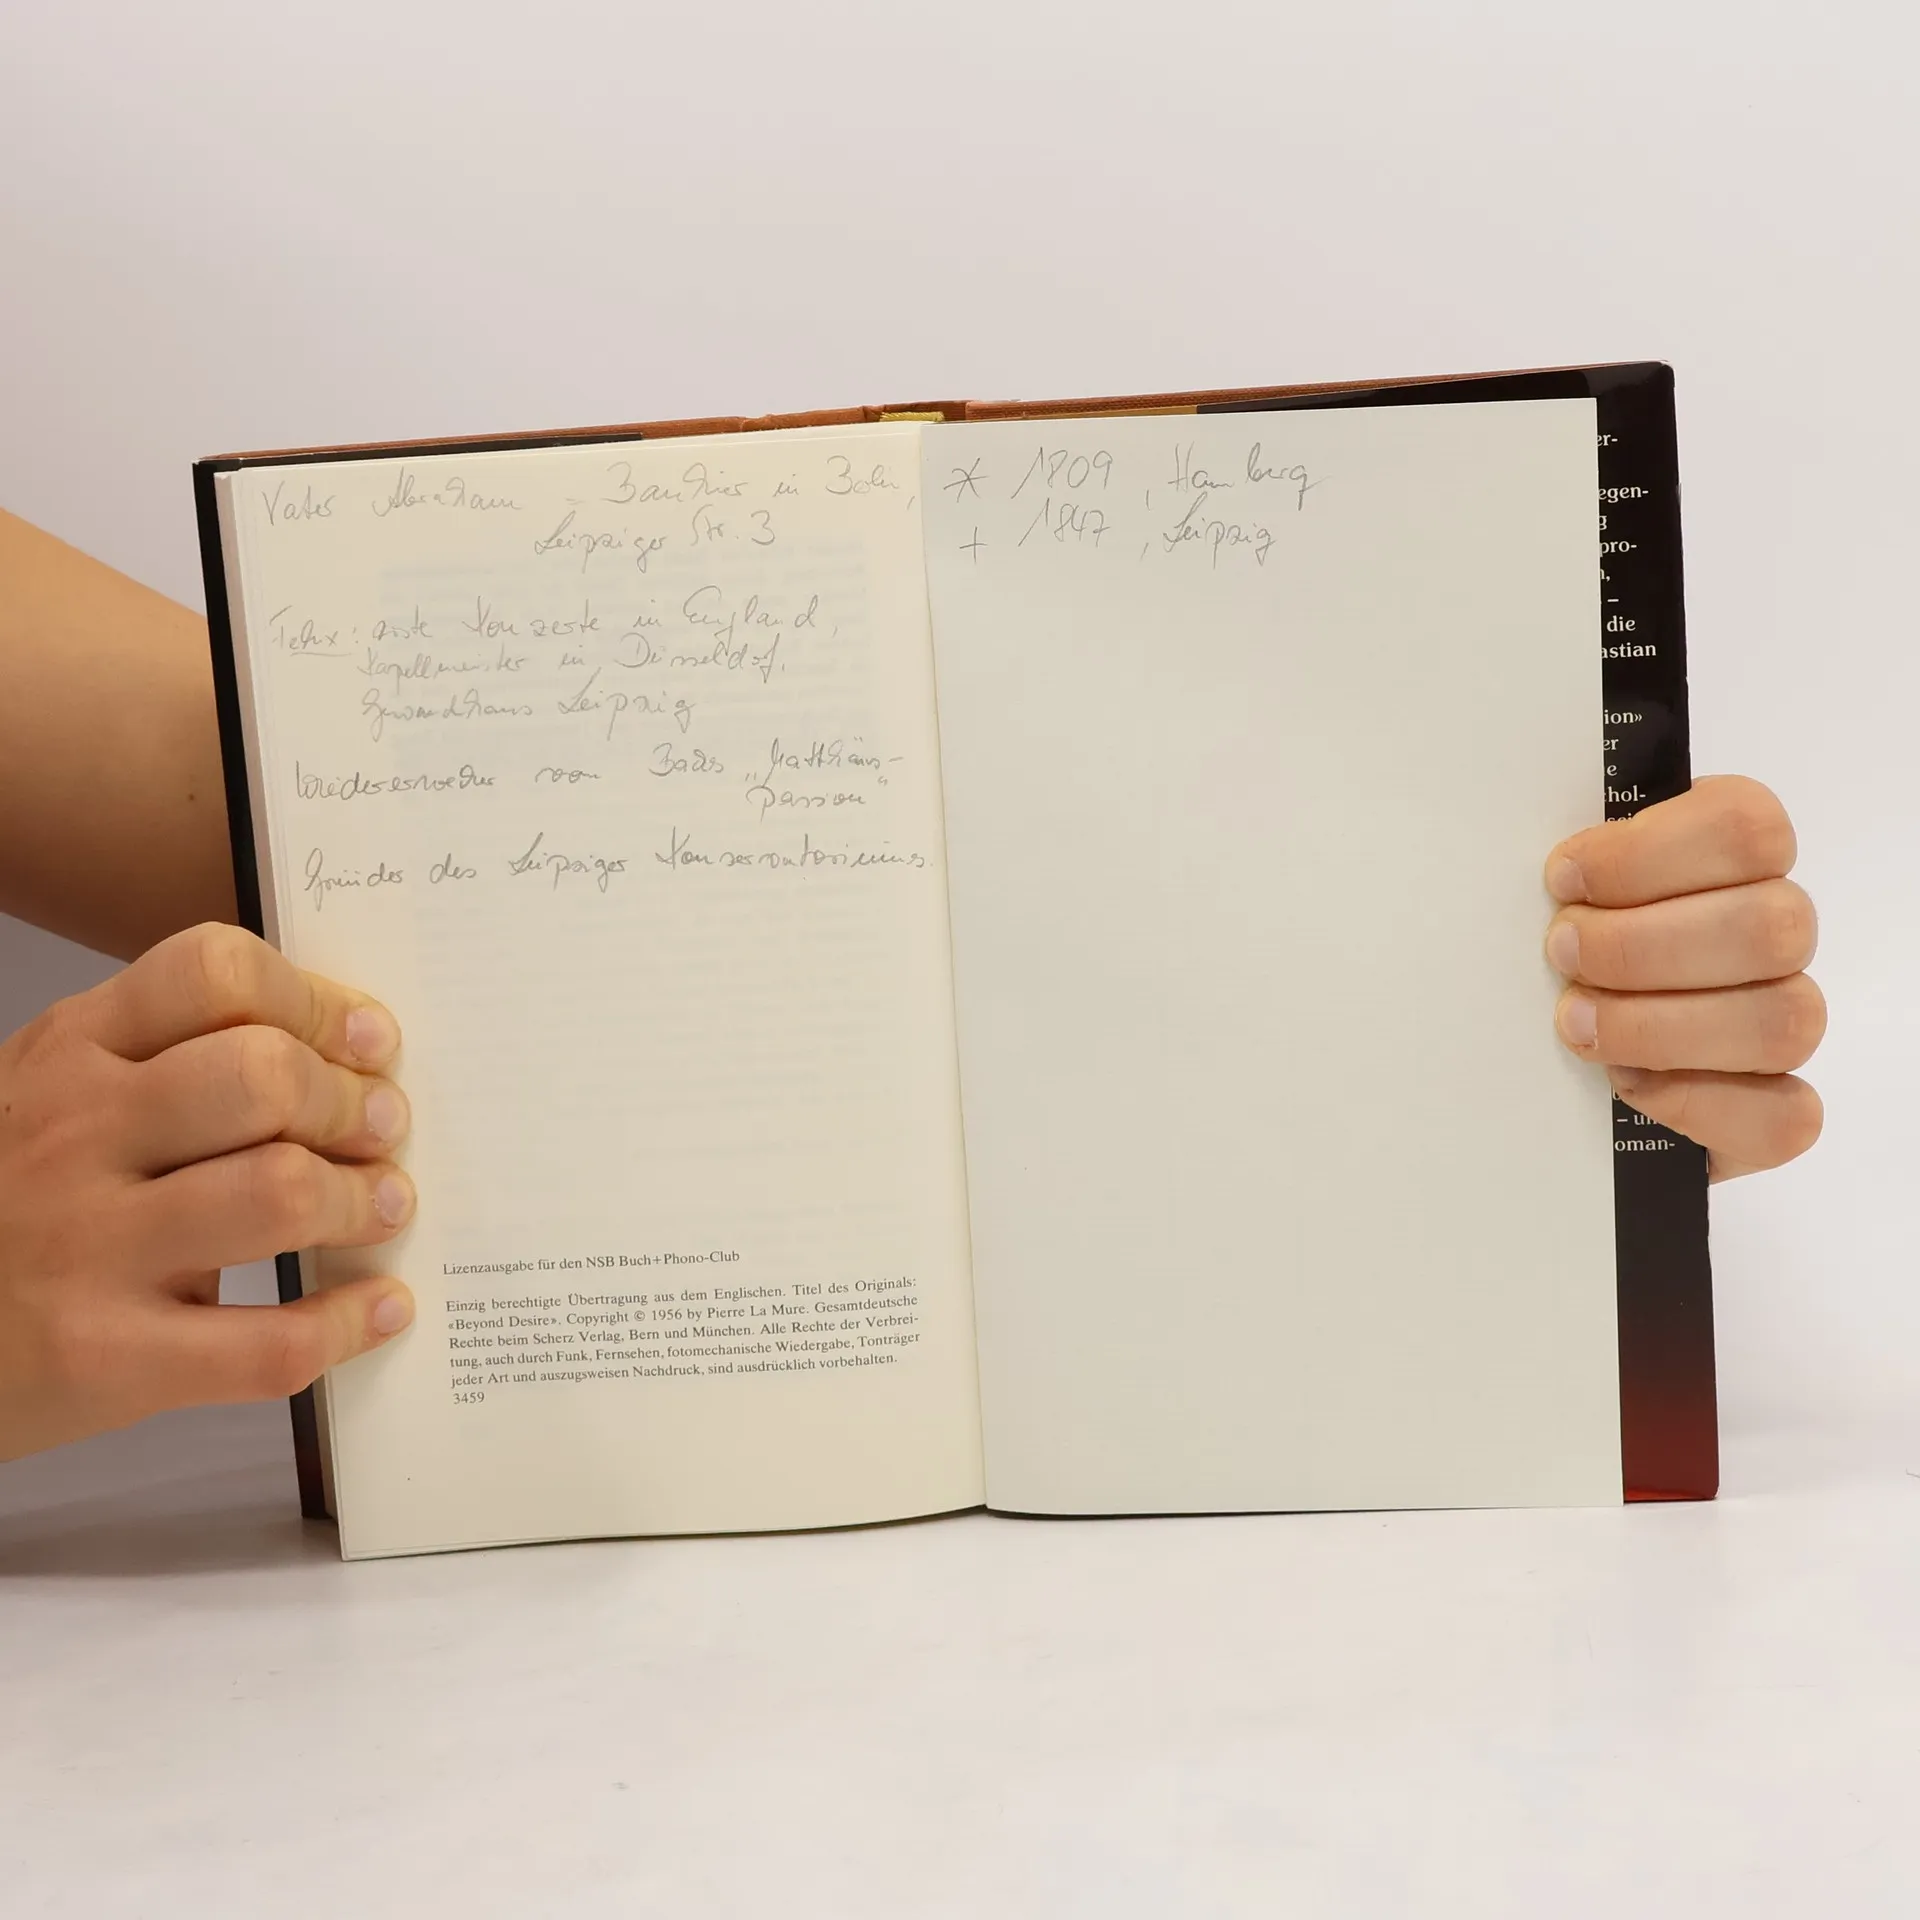 Vater Abraham = Bankier in Berlin,
Leipziger Str. 3
Felix: erste Konzerte in England,
Kapellmeister in Düsseldorf,
Gewandhaus Leipzig
Wiedererwecker von Bachs „Matthäus-
passion“
Gründer des Leipziger Konservatoriums.
Lizenzausgabe für den NSB Buch+Phono-Club
Einzig berechtigte Übertragung aus dem Englischen. Titel des Originals:
«Beyond Desire». Copyright © 1956 by Pierre La Mure. Gesamtdeutsche
Rechte beim Scherz Verlag, Bern und München. Alle Rechte der Verbrei-
tung, auch durch Funk, Fernsehen, fotomechanische Wiedergabe, Tonträger
jeder Art und auszugsweisen Nachdruck, sind ausdrücklich vorbehalten.
3459
* 1809, Hamburg
+ 1847, Leipzig
er-
egen-
g
pro-
n,
–
die
astian
ion»
er
e
chol-
– un
oman-